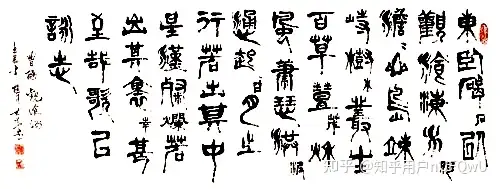 東臨碣石
觀滄海水何
澹澹山島竦
峙樹木叢生
百草豐茂秋
風蕭瑟洪波
湧起日月之
行若出其中
星漢燦爛若
出其裏幸甚
至哉歌以
詠志
曹操 觀滄海
知乎 @知乎用户